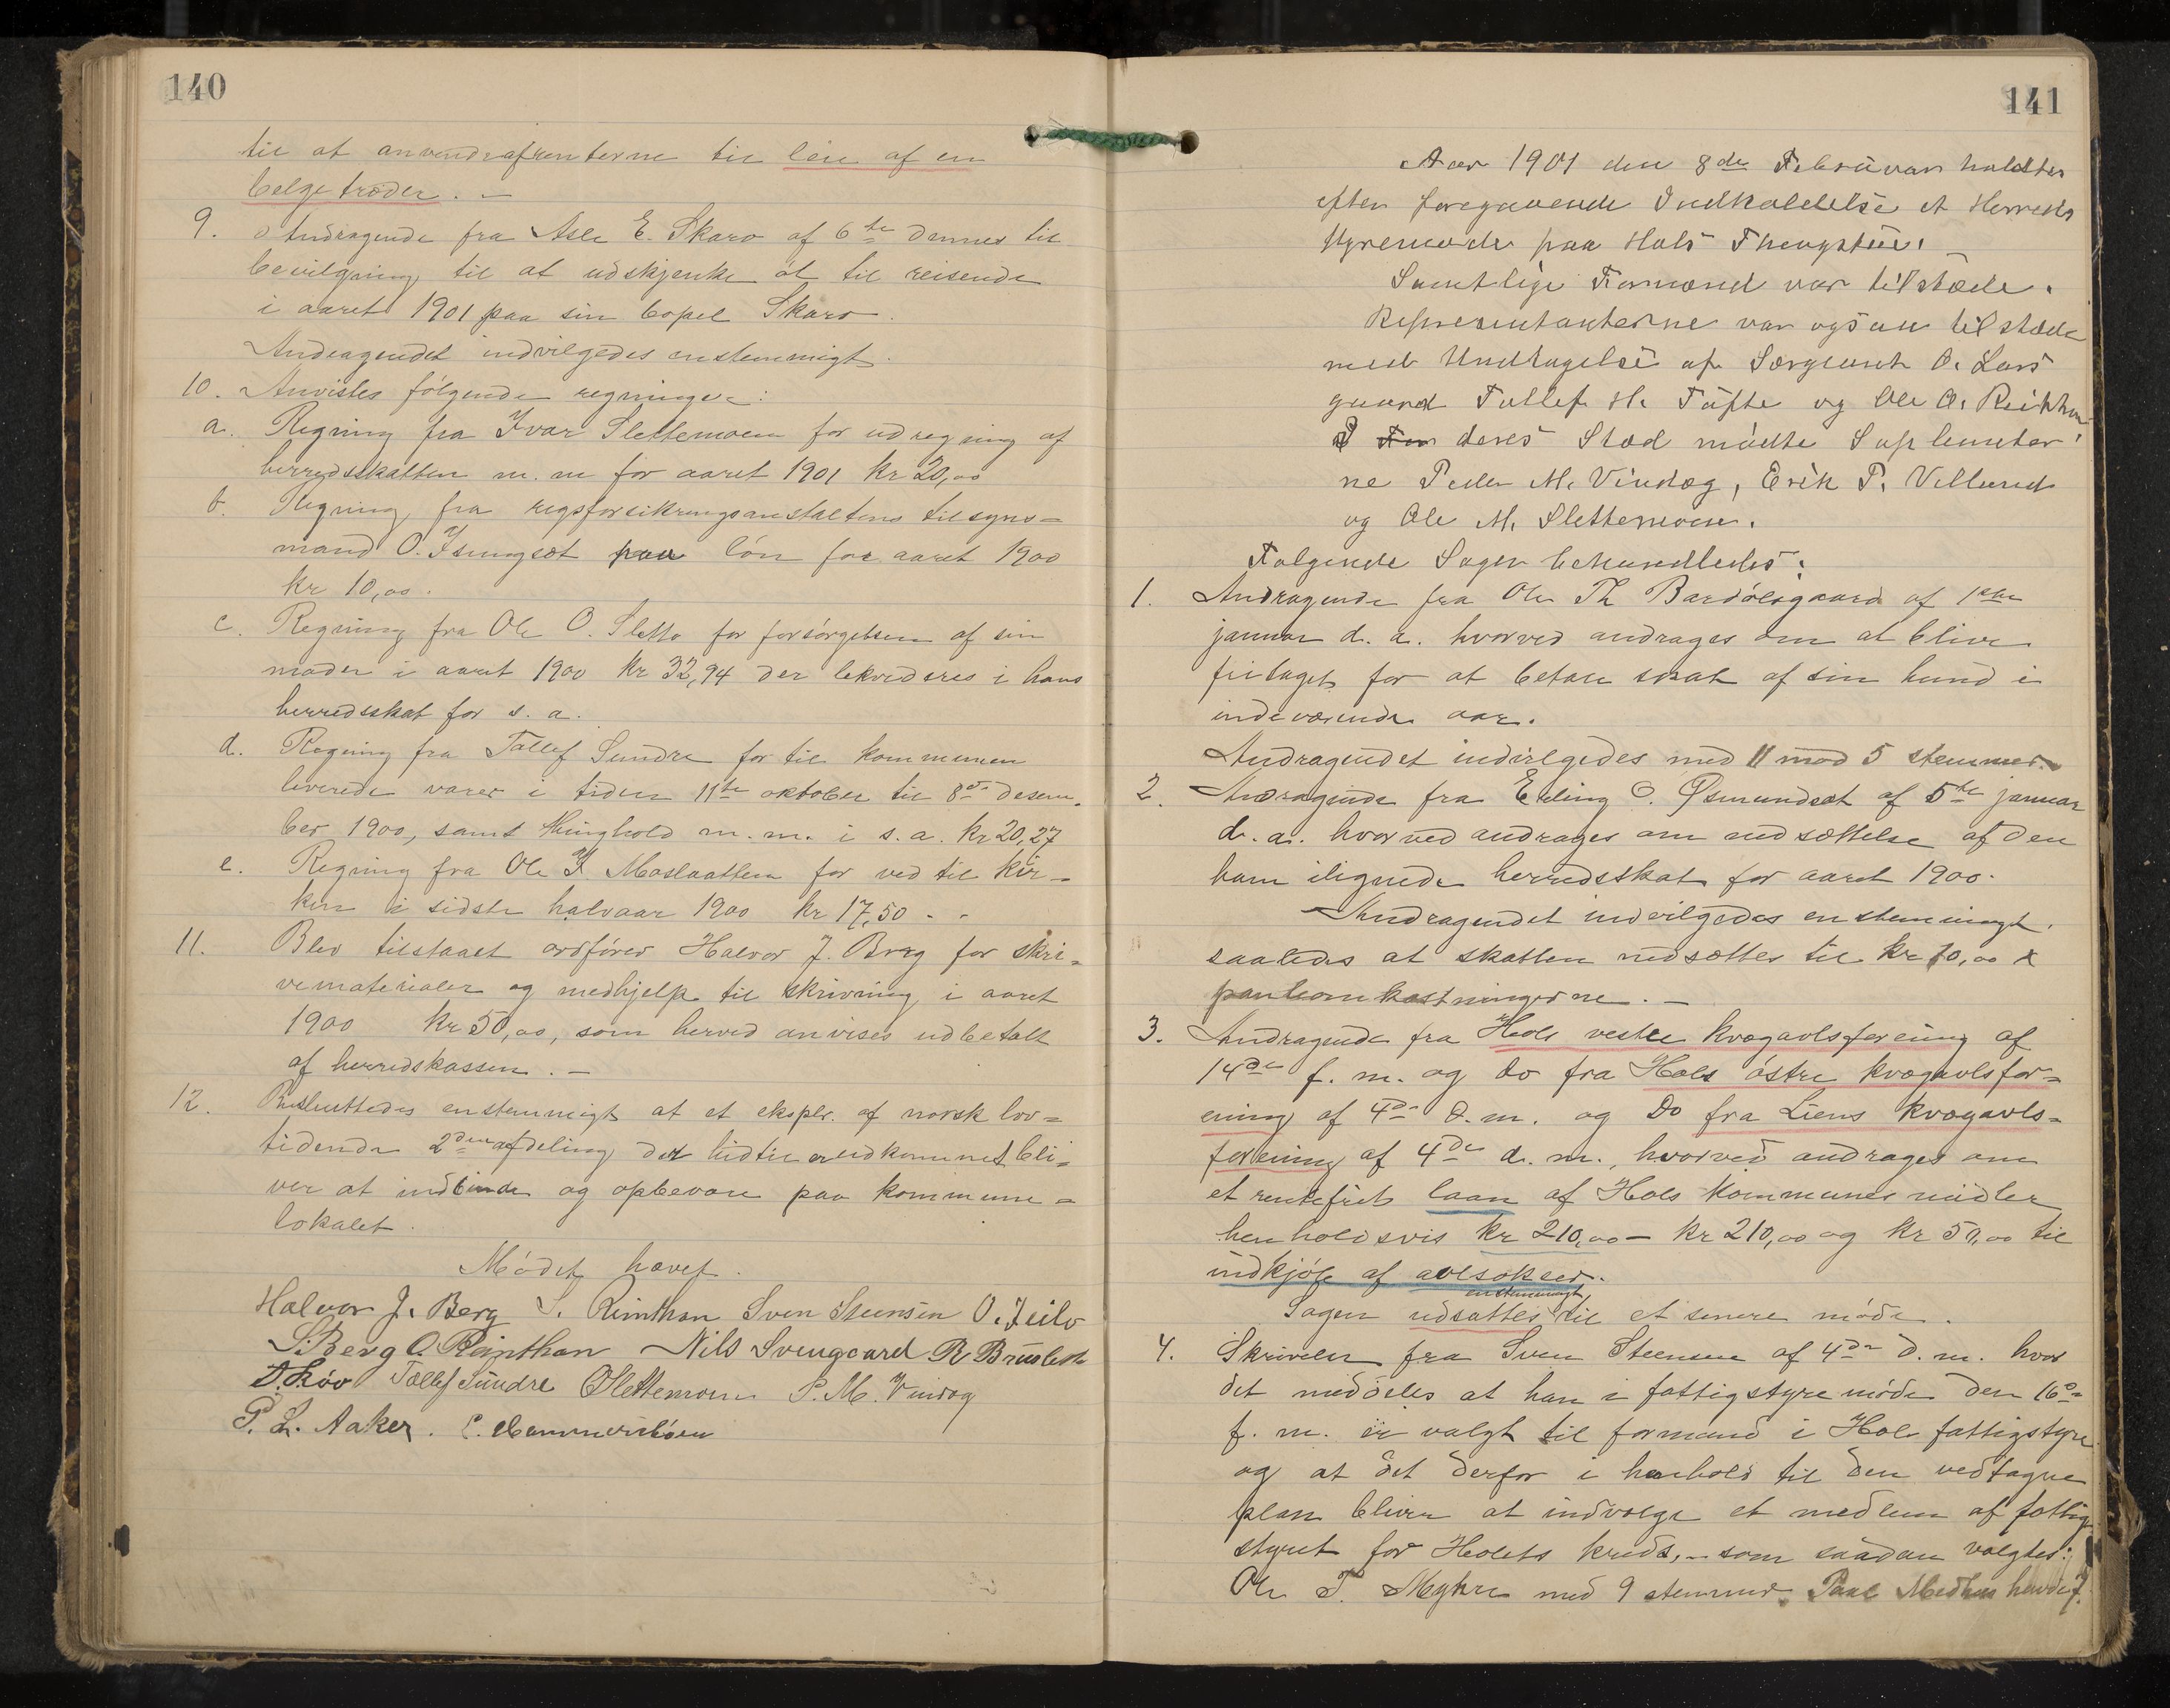 140
til at anvende afrenterne til leie af en
belgetræder. —
9. Andragende fra Asle E. Skaro af 6te dennes til
bevilgning til at udskjenke øl til reisende
i aaret 1901 paa sin bopel Skaro.
Andragendet indvilgedes enstemmigt.
10. Anvistes følgende regninger:
a. Regning fra Ivar Slettemoen for udregning af
herredsskatten m. m for aaret 1901 kr 20,00
b. Regning fra rigsforsikringsanstaltens tilsyns=
mand O. paa løn for aaret 1900
kr 10,00.
c. Regning fra Ole O. Sletto for forsørgelsen af sin
moder i aaret 1900 kr 32,94 der lekvideres i hans
herredsskat for s. a.
d. Regning fra Tollef Sundre for til kommunen
leverede varer i tiden 11te oktober til 8de desem=
ber 1900, samt thinghold m. m. i s. a. kr 20,27
e. Regning fra Ole I. Moslaatten for ved til kir=
ken i sidste halvaar 1900 kr 17,50 - -
11. Blev tilstaaet ordfører Halvor J. Berg for skri=
vematerialer og medhjelp til skrivning i aaret
1900 kr 50,00, som herved anvises udbetalt
af herredskassen. —
12. Besluttedes enstemmigt at et ekspl. af norsk lov=
tidende 2den afdeling der hidtil er udkommet bli=
ver at indbinde og opbevare paa kommune=
lokalet.
Mødet hævet.
Halvor J. Berg S. Reinthon Sven Steensen O. Jeilo
S. Berg O. Reinthon Nils Svengaard R Bruslett
T. Løv Tollef Sundre OSlettemoen P. M. Vindæg
P. L. Aaker. E. Hammersbøen
141
Aar 1901 den 8de Februvar holdtes
efter foregaaende Indkaldelse et Herreds
styremøde paa Hols Thengstue.
Samtlige Formænd var tilstæde.
Representanterne var ogsaa tilstæde
med Undtagelse af Sergeant O. Lars
gaard Tollef H. Tufte og Ole O. Reinthon
I For deres Sted mødte Suplenter
ne Peder M. Vindæg, Erik P. Villand
og Ole M. Slettemoen.
Følgende Sager behandledes:
1. Andragende fra Ole Th Bardølsgaard af 1ste
januar d. a. hvorved andrages om at blive
fritaget for at betale skat af sin hund i
indeværende aar.
Andragendet indvilgedes med 11 mod 5 stemmer.
2. Andragende fra Erling O. Øsmundset af 5te januar
d. a. hvorved andrages om nedsættelse af den
ham ilignede herredsskat for aaret 1900.
Andragendet indvilgedes enstemmigt.
saaledes at skatten nedsættes til kr 10,00 x
panteomkostningerne. —
3. Andragende fra Hols vestre kvægavlsforening af
14de f. m. og do fra Hols østre kvægavlsfor=
ening af 4de d. m. og Do fra Liens kvægavls=
forening af 4de d. m., hvorved andrages om
et rentefrit laan af Hols kommunes midler
henholdsvis kr 210,00 — kr 210,00 og kr 50,00 til
indkjøb af avlsokser.
Sagen udsattes enstemmigt til et senere møde.
4. Skrivelse fra Sven Steensen af 4de d. m. hvor
det meddeles at han i fattigstyremøde den 16de
f. m. er valgt til formand i Hol fattigstyre
og at det derfor i henhold til den vedtagne
plan bliver at indvælge et medlem af fattig
styret for Holets kreds, - som saadan valgtes:
Ole T. Myhre med 9 stemmer. Paul Medhus havde 7.